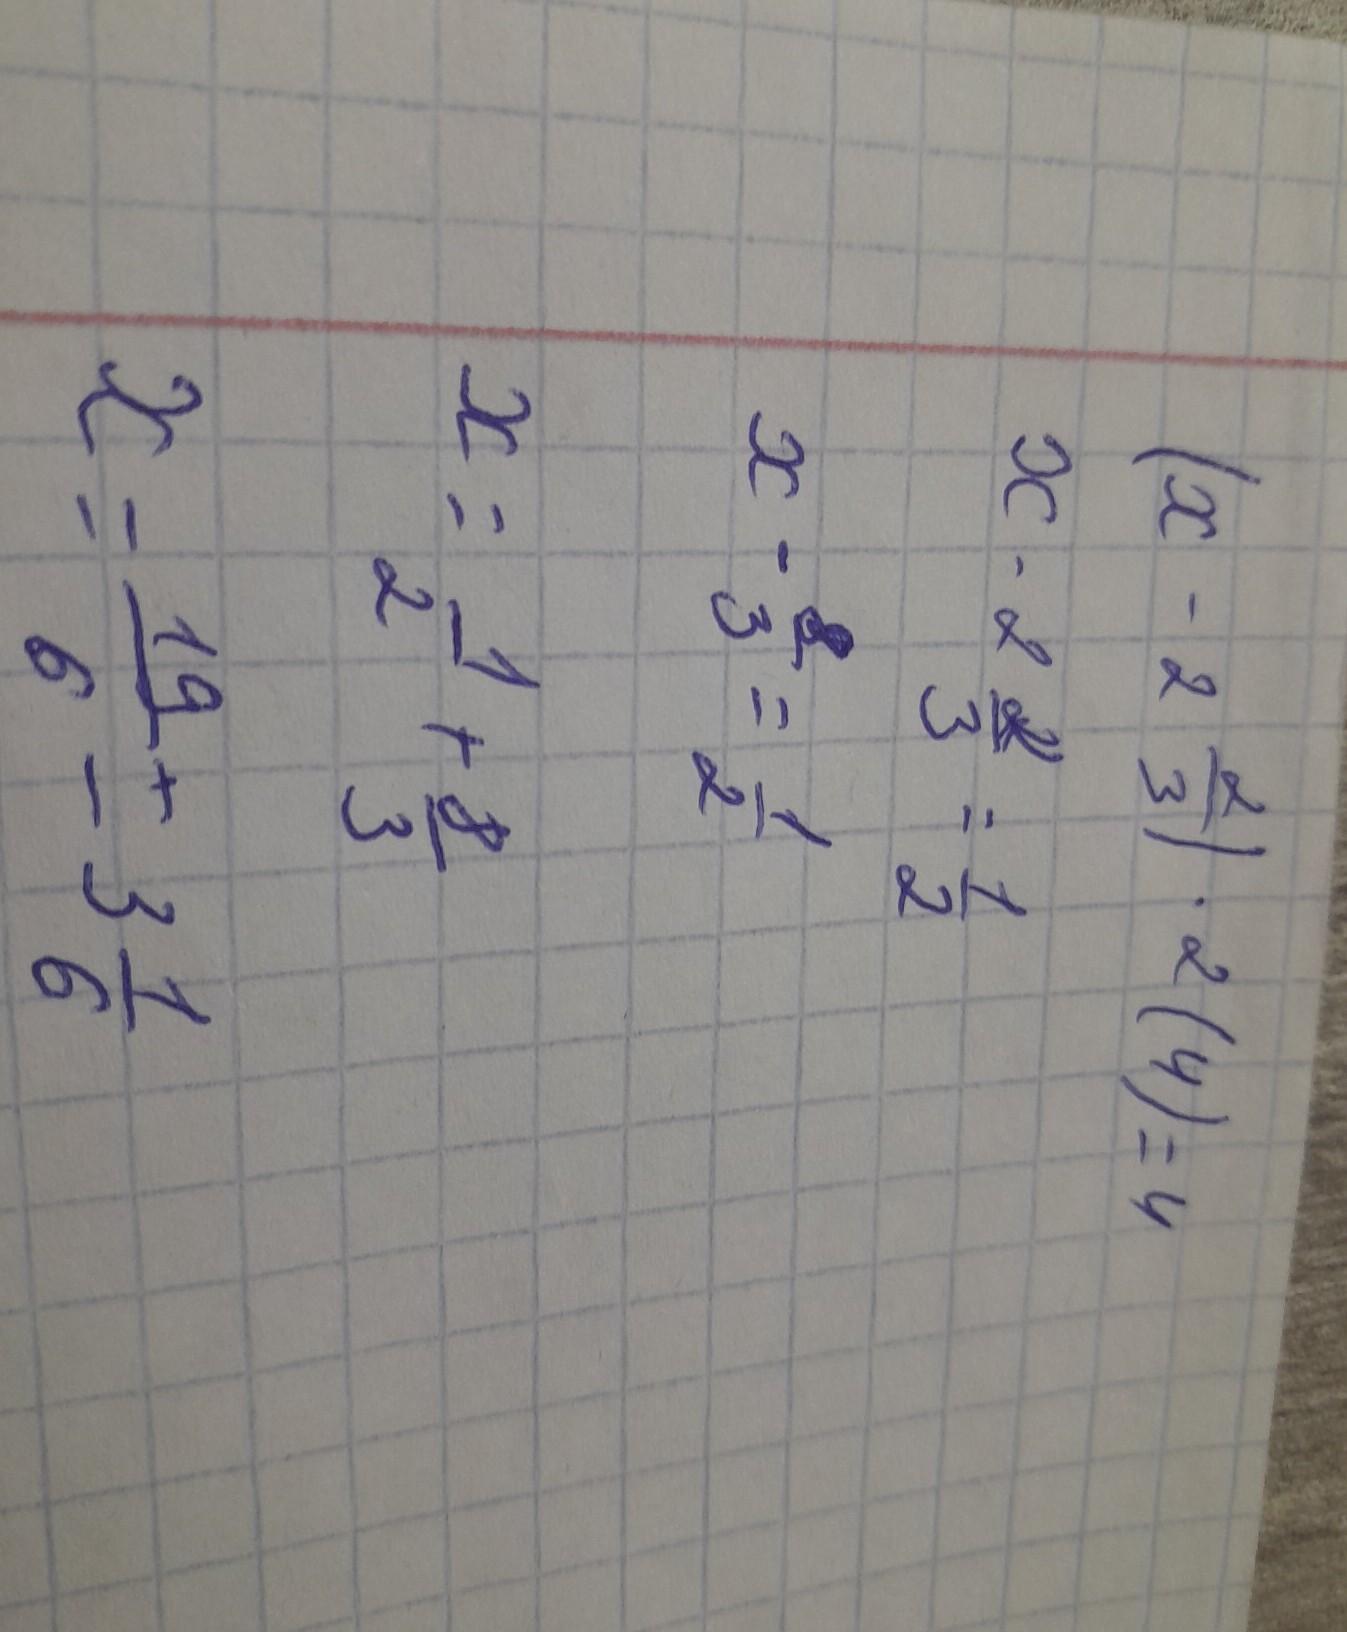 (x - 2 2/3) · 2(4) = 4
x - 2 2/3 = 1/2
x - 8/3 = 1/2
x = 1/2 + 8/3
x = 19/6 = 3 1/6